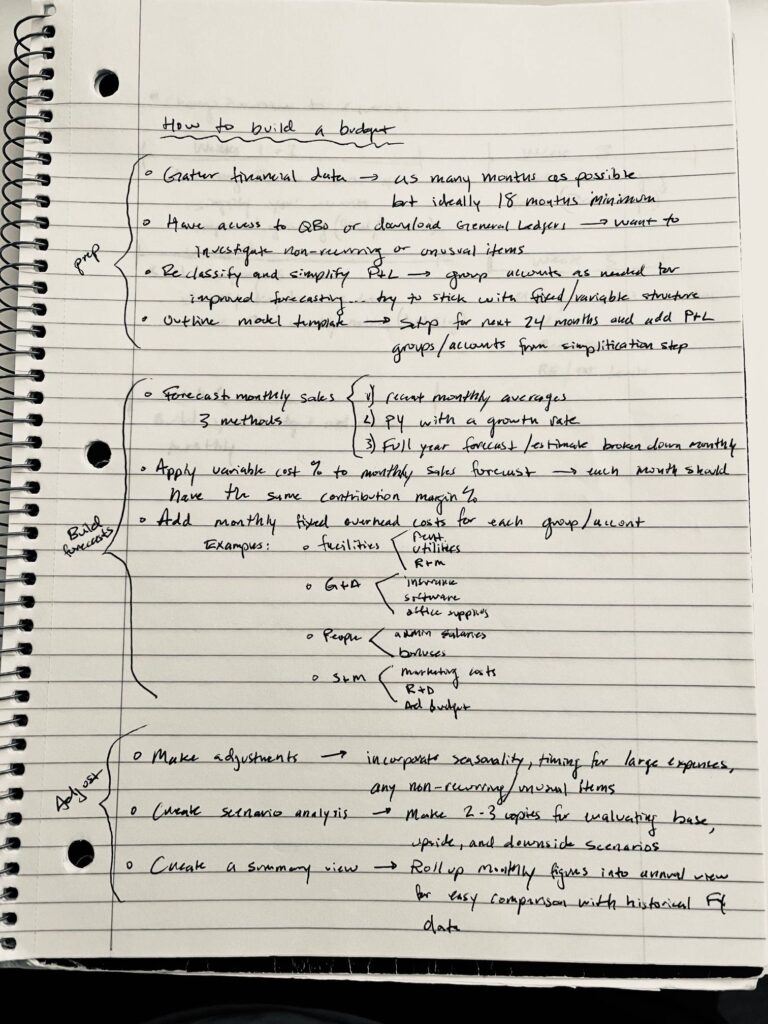 How to build a budget
prep
• Gather financial data → as many months as possible
but ideally 18 months minimum
• Have access to QBO or download General Ledgers → want to
investigate non-recurring or unusual items
• Reclassify and simplify P+L → group accounts as needed for
improved forecasting... try to stick with fixed/variable structure
• Outline model template → Setup for next 24 months and add P+L
groups/accounts from simplification step
Build
forecasts
• Forecast monthly sales
3 methods
1) recent monthly averages
2) PY with a growth rate
3) Full year forecast/estimate broken down monthly
• Apply variable cost % to monthly sales forecast → each month should
have the same contribution margin %
• Add monthly fixed overhead costs for each group/account
Examples:
• facilities
Rent
utilities
R+M
• G+A
insurance
software
office supplies
• People
admin salaries
bonuses
• S+M
marketing costs
R+D
Ad budget
Adjust
• Make adjustments → incorporate seasonality, timing for large expenses,
any non-recurring/unusual items
• Create scenario analysis → Make 2-3 copies for evaluating base,
upside, and downside scenarios
• Create a summary view → Roll up monthly figures into annual view
for easy comparison with historical FY
data